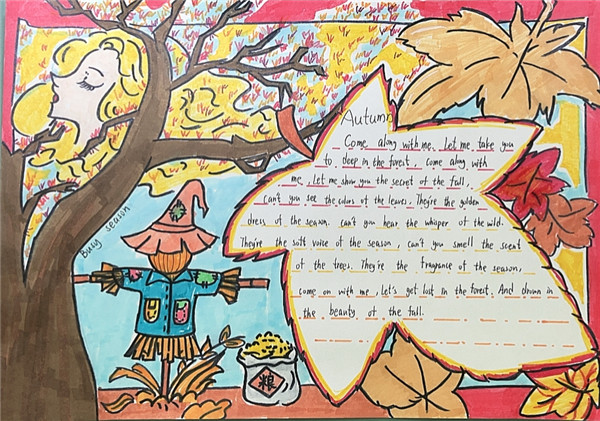 Autumn
Come along with me, Let me take you
to deep in the forest. come along with
me, Let me show you the secret of the fall.
can't you see the colors of the leaves. They're the golden
dress of the season. can't you hear the whisper of the wild.
They're the soft voice of the season, can't you smell the scent
of the trees. They're the fragrance of the season,
come on with me, Let's get lost in the forest. And drown in
the beauty of the fall.
Busy season
粮